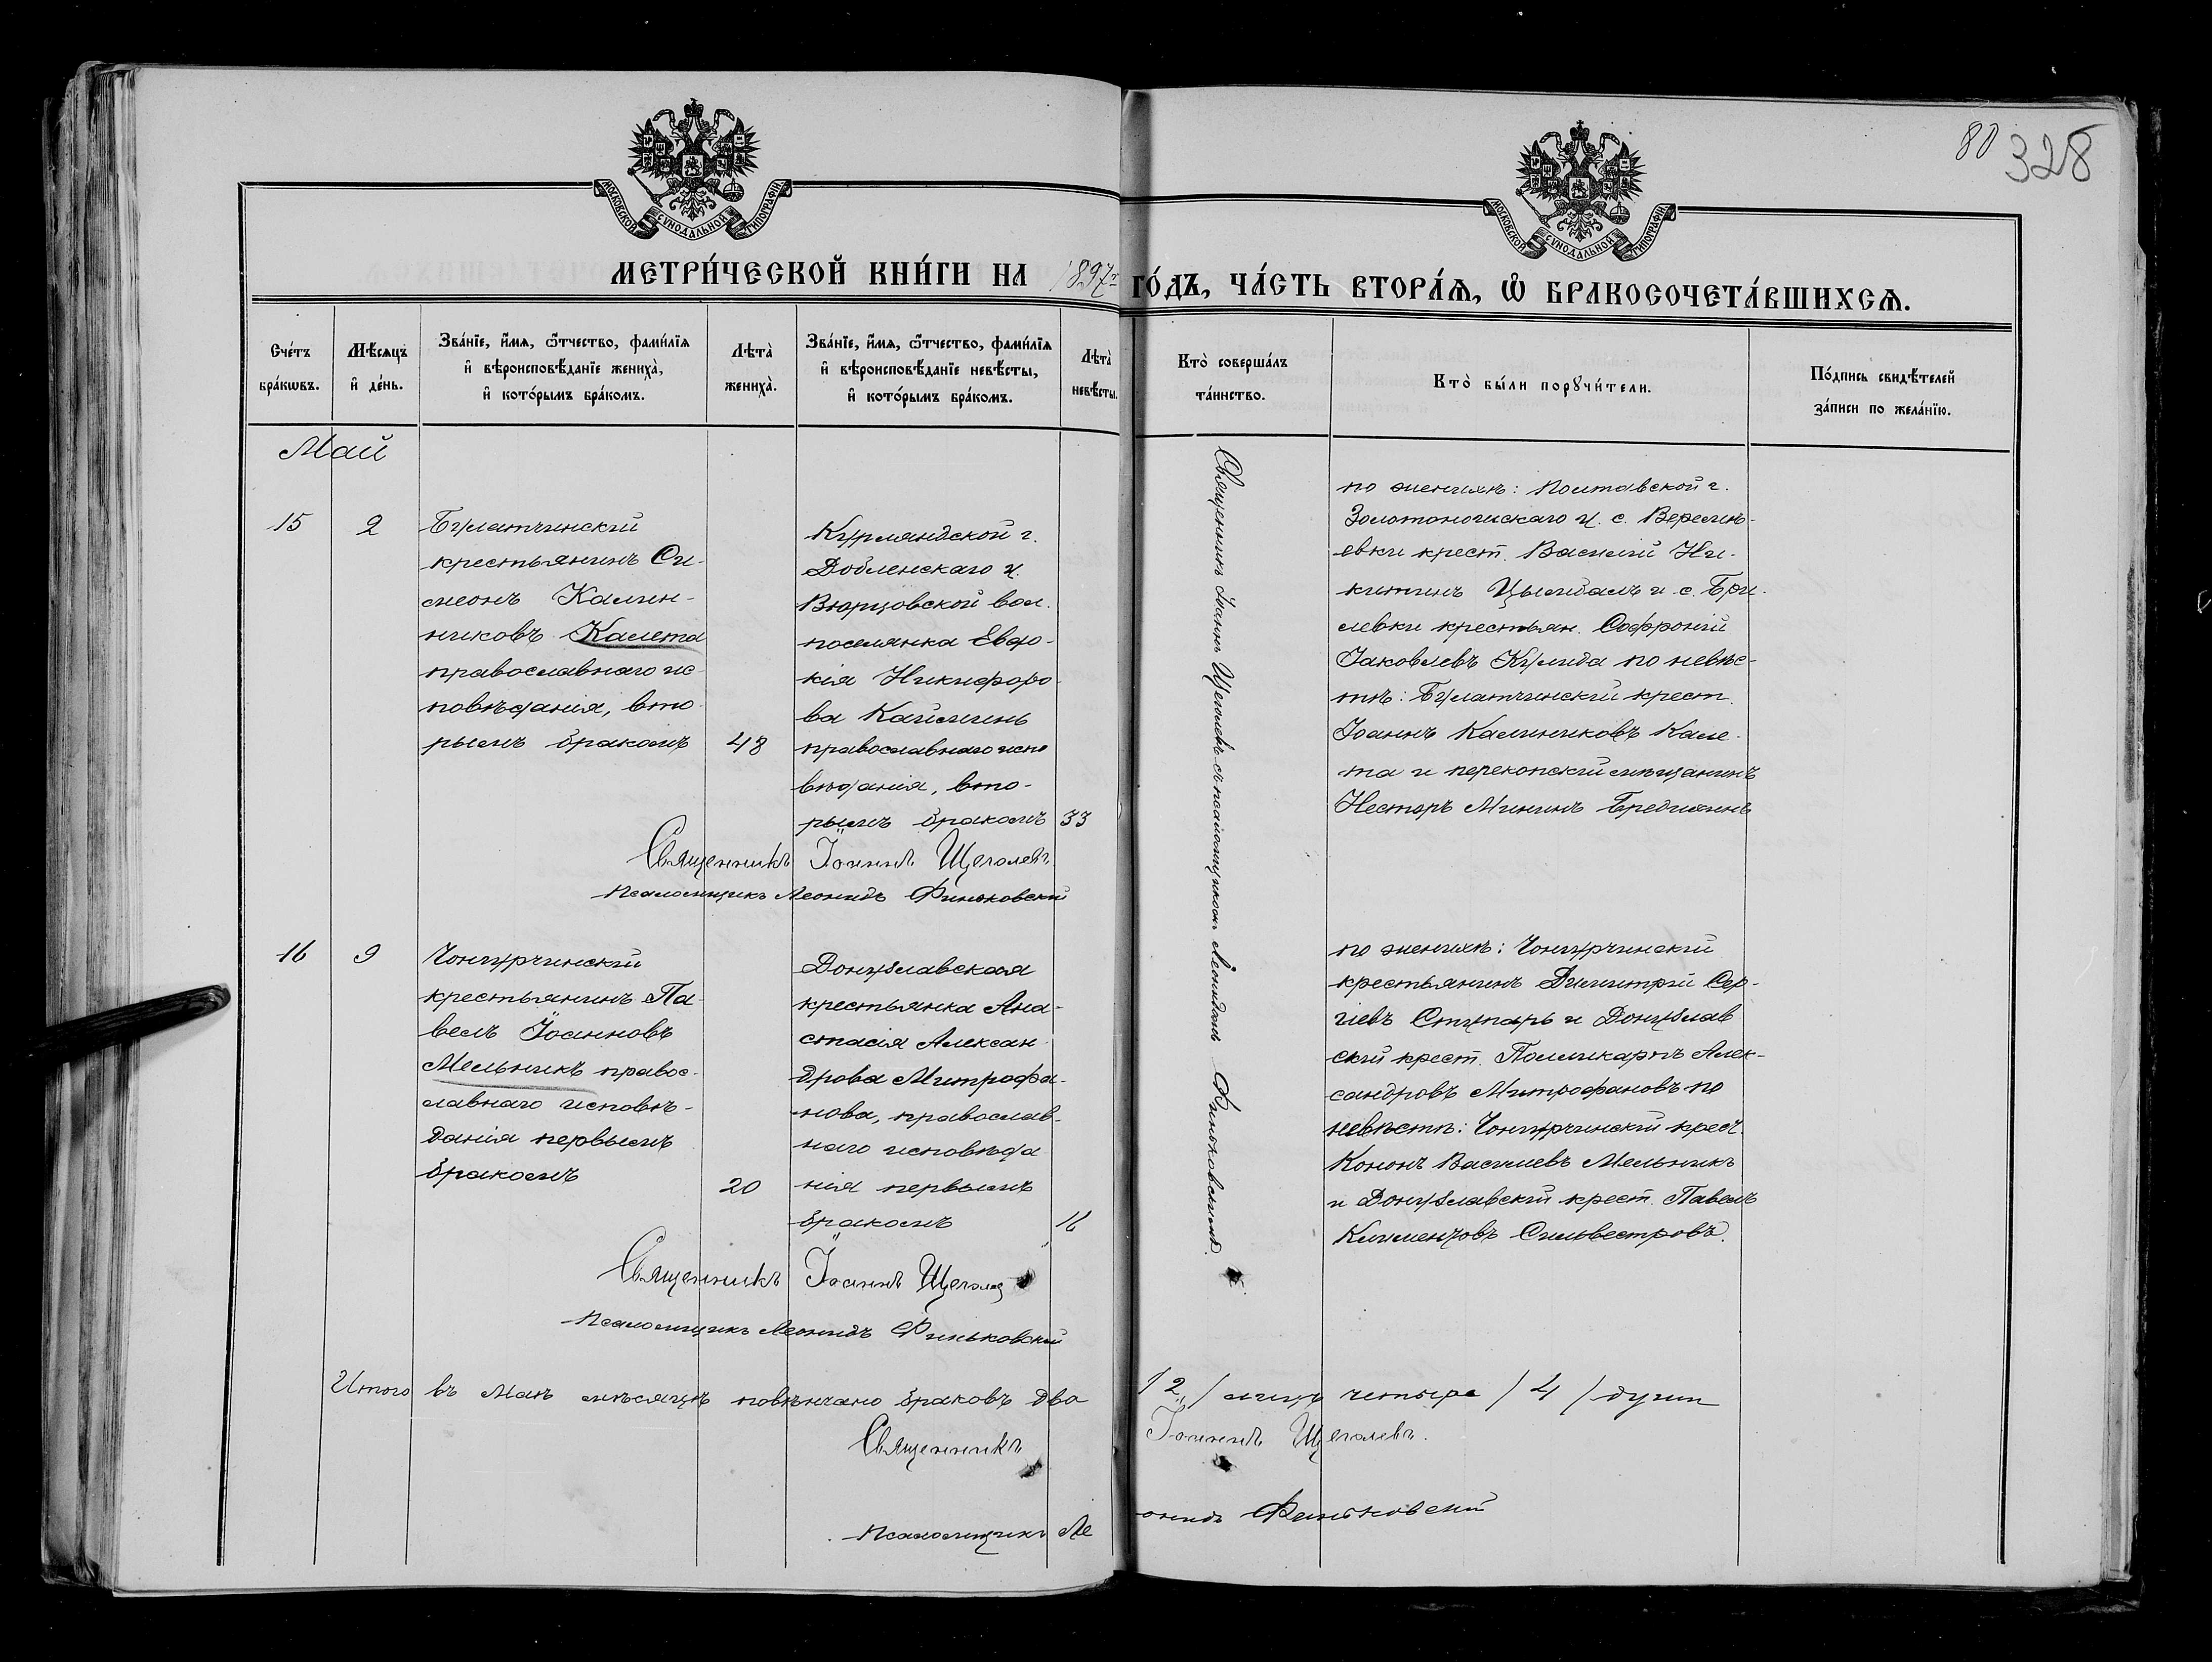 80 328
МОСКОВСКОЙ СѴНОДАЛЬНОЙ ТИПОГРАФІИ
МОСКОВСКОЙ СѴНОДАЛЬНОЙ ТИПОГРАФІИ
МЕТРИ́ЧЕСКОЙ КНИ́ГИ НА 1897 г. ГО́ДЪ, ЧА́СТЬ ВТОРА́Ѧ, Ѽ БРАКОСОЧЕТА́ВШИХСѦ.
Сче́тъ бра́кѡвъ.
Мѣ́сѧцъ и҆ де́нь.
Зва́нїе, и҆́мѧ, ѻ҆́тчество, фами́лїѧ и҆ вѣроисповѣ́данїе жениха̀, и҆ кото́рымъ бра́комъ.
Лѣта̀ жениха̀.
Зва́нїе, и҆́мѧ, ѻ҆́тчество, фами́лїѧ и҆ вѣроисповѣ́данїе невѣ́сты, и҆ кото́рымъ бра́комъ.
Лѣта̀ невѣ́сты.
Кто̀ соверша́лъ та́инство.
Кто̀ бы́ли порꙋчи́тели.
По́дпись свидѣ́телей за́писи по жела́нїю.
Май
15
2
Булатчинскій
крестьянинъ Си-
меонъ Калин-
никовъ Калета
православнаго ис-
повѣданія, вто-
рымъ бракомъ
48
Курляндской г.
Добленскаго у.
Вюрцовской вол.
поселянка Евдо-
кія Никифоро-
ва Кайминь
православнаго испо
вѣданія, вто-
рымъ бракомъ
33
Священникъ Іоаннъ Щеголевъ с псаломщикомъ Леонидомъ Финьковскимъ.
по женихѣ: Полтавской г.
Золотоношскаго у. с. Веремѣ-
евки крест. Василій Ни-
китинъ Цымбалъ и с. Бри-
левки крестьян. Софроній
Іаковлевъ Кулида по невѣс-
тѣ: Булатчинскій крест.
Іоаннъ Калинниковъ Кале-
та и перекопскій мѣщанинъ
Несторъ Мининъ Бредихинъ
Священникъ Іоаннъ Щеголевъ
Псаломщикъ Леонидъ Финьковскій
16
9
Чонгурчинскій
крестьянинъ Па-
велъ Іоанновъ
Мельникъ правос-
лавнаго исповѣ-
данія первымъ
бракомъ
20
Донузлавская
крестьянка Ана-
стасія Алексан
дрова Митрофа-
нова, православ-
наго исповѣда
нія первымъ
бракомъ
16
по женихѣ: Чонгурчинскій
крестьянинъ Димитрій Сер-
гіевъ Ступарь и Донузлав
скій крест. Поликарпъ Алек-
сандровъ Митрофановъ по
невѣстѣ: Чонгурчинскій крест.
Кононъ Василіевъ Мельникъ
и Донузлавскій крест. Павелъ
Климентовъ Сильвестровъ.
Священникъ Іоаннъ Щеголев
Псаломщикъ Леонидъ Финьковскій
Итого въ Маѣ мѣсяцѣ повѣнчано браковъ два / 2 / лицъ четыре / 4 / души
Священникъ Іоаннъ Щеголевъ.
Псаломщикъ Леонидъ Финьковскій